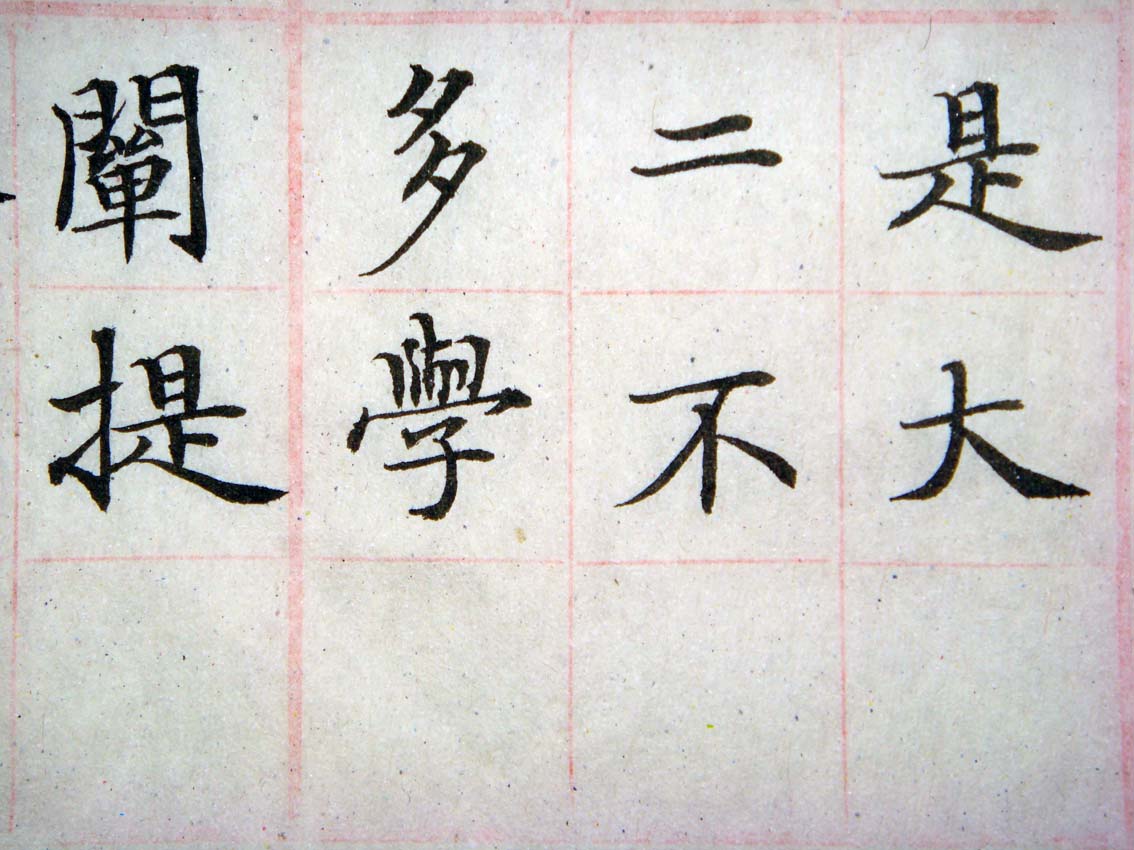 是大
二不
多學
闡提